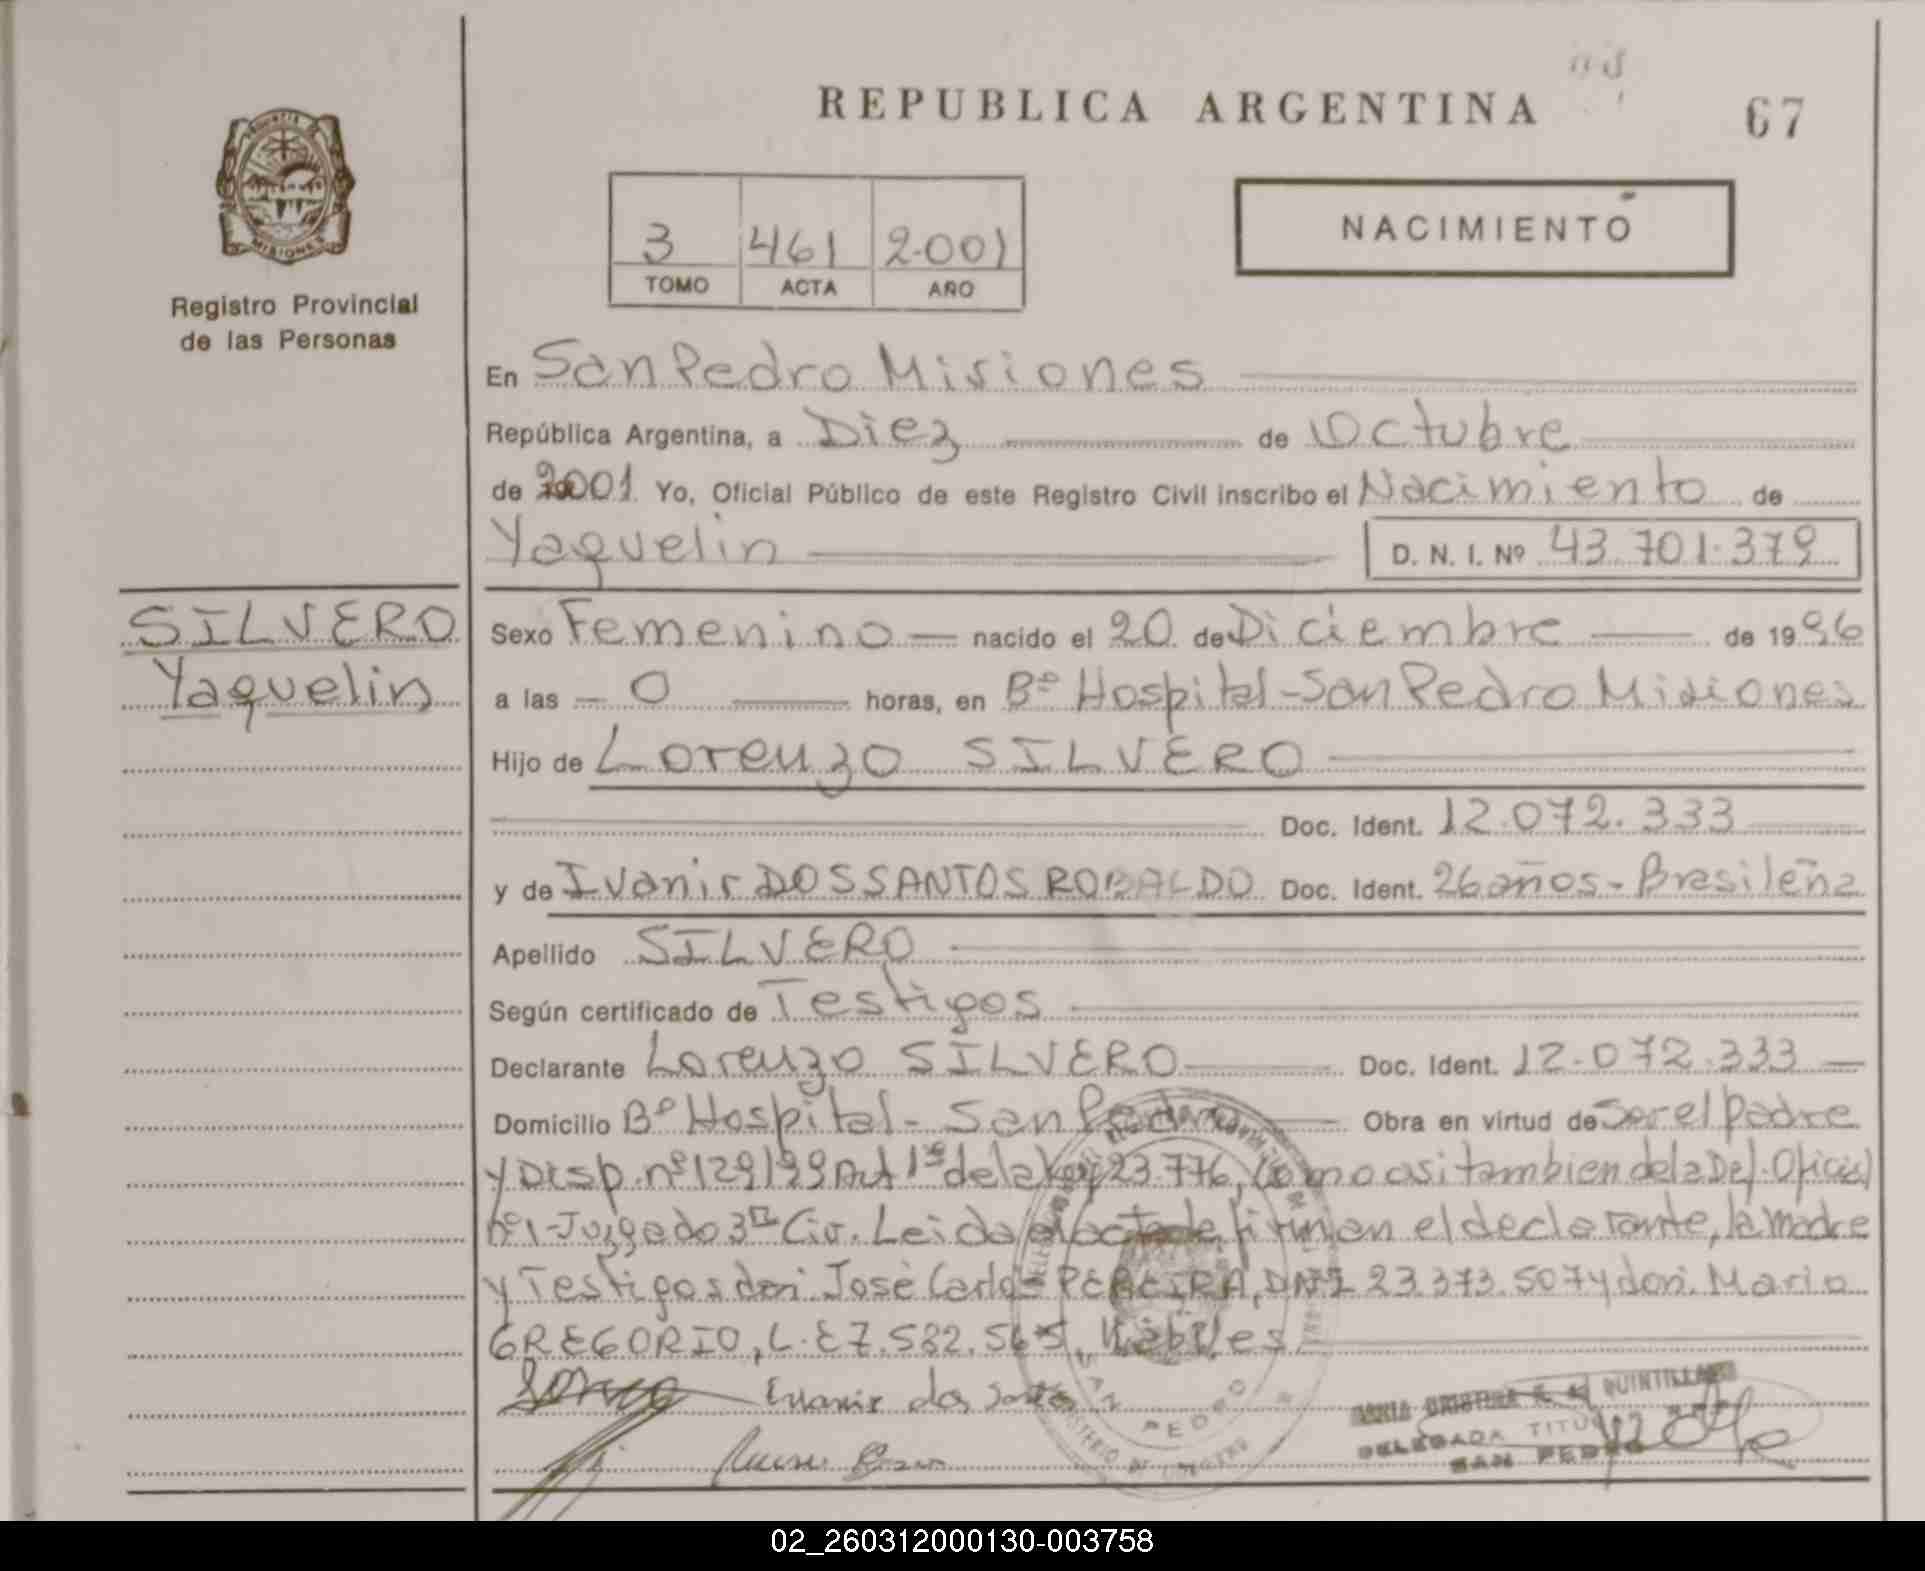 REPUBLICA ARGENTINA
67
PROVINCIA DE
MISIONES
Registro Provincial
de las Personas
3 461 2.001
TOMO ACTA AÑO
NACIMIENTO
En San Pedro Misiones
República Argentina, a Diez de Octubre
de 2001 Yo, Oficial Público de este Registro Civil inscribo el Nacimiento de
Yaquelin D. N. I. Nº 43.701.379
SILVERO
Yaquelin
Sexo Femenino nacido el 20 de Diciembre de 1996
a las 0 horas, en Bº Hospital - San Pedro Misiones
Hijo de Lorenzo SILVERO
Doc. Ident. 12.072.333
y de Ivanir DOS SANTOS ROBALDO Doc. Ident. 26 años - Brasileña
Apellido SILVERO
Según certificado de Testigos
Declarante Lorenzo SILVERO Doc. Ident. 12.072.333
Domicilio Bº Hospital - San Pedro Obra en virtud de Ser el padre
y Disp. nº 129/99 Art 1º de la Ley 23.776, Como asi tambien de la Def. Oficial
nº1 - Juzgado 3º Civ. Leida el acta de firman el declarante, la madre
y Testigos don José Carlos PEREIRA, DNI 23.373.507 y don Mario
GREGORIO, L.E 7.582.565, Hábiles
Ivanir dos Santos
SAN PEDRO
QUINTILLAN
DELEGADA TITULAR
SAN PEDRO
02_260312000130-003758